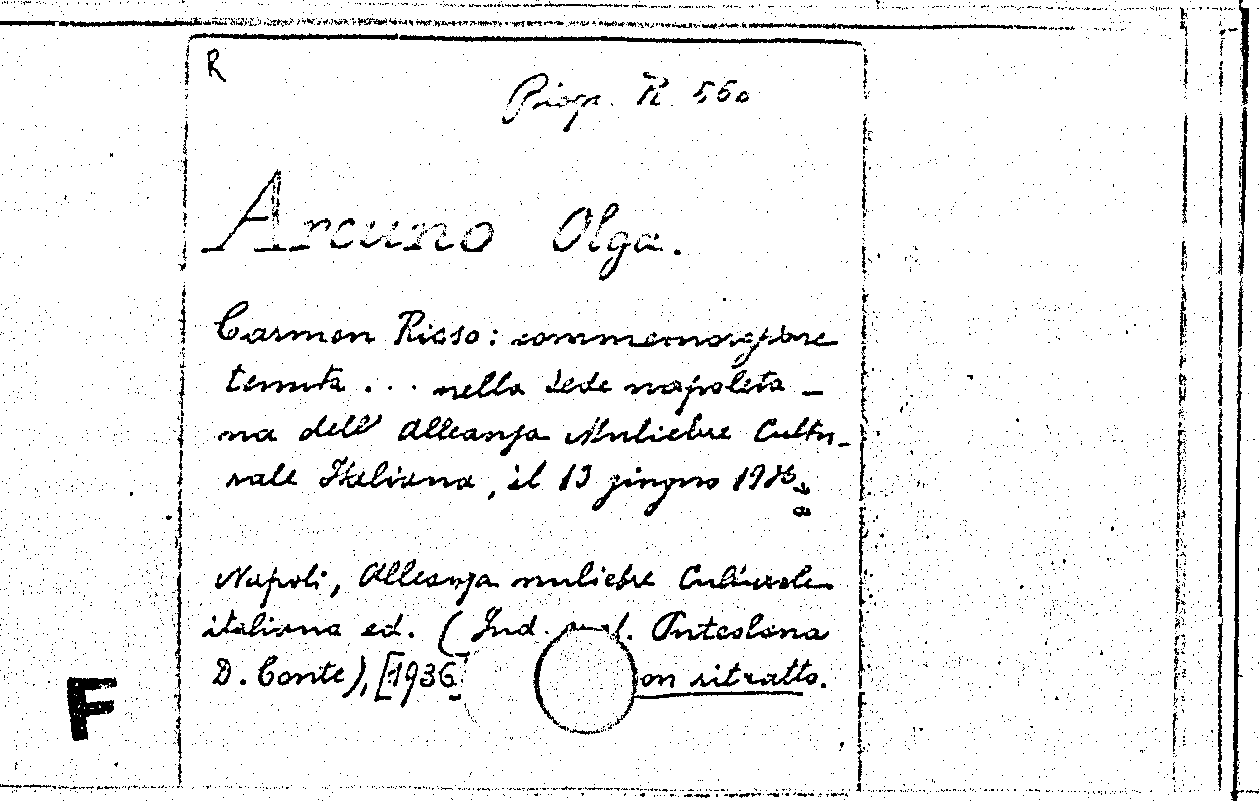 R
Biogr. R 560
Arcuno Olga.
Carmen Risso: commemorazione
tenuta ... nella sede napoleta-
na dell' Alleanza Muliebre Cultu-
rale Italiana, il 13 giugno 1936.
Napoli, Alleanza muliebre Culturale
italiana ed. (Ind. Puteolana
D. Conte), [1936 on ritratto.
F